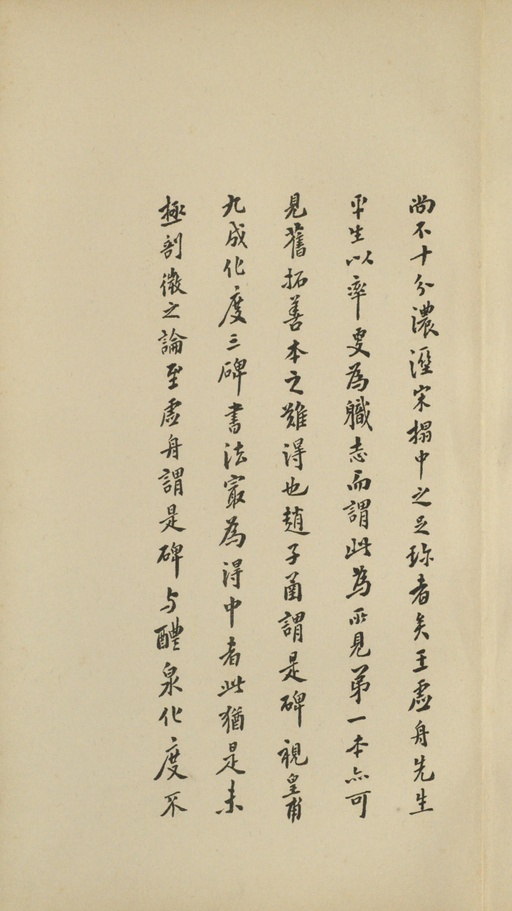 尚不十分濃溼宋搨中之足珍者矣王虛舟先生
平生以率更為職志而謂此為所見第一本亦可
見舊拓善本之難得也趙子函謂是碑視皇甫
九成化度三碑書法寂為得中者此猶是未
極剖徵之論至虛舟謂是碑与醴泉化度不